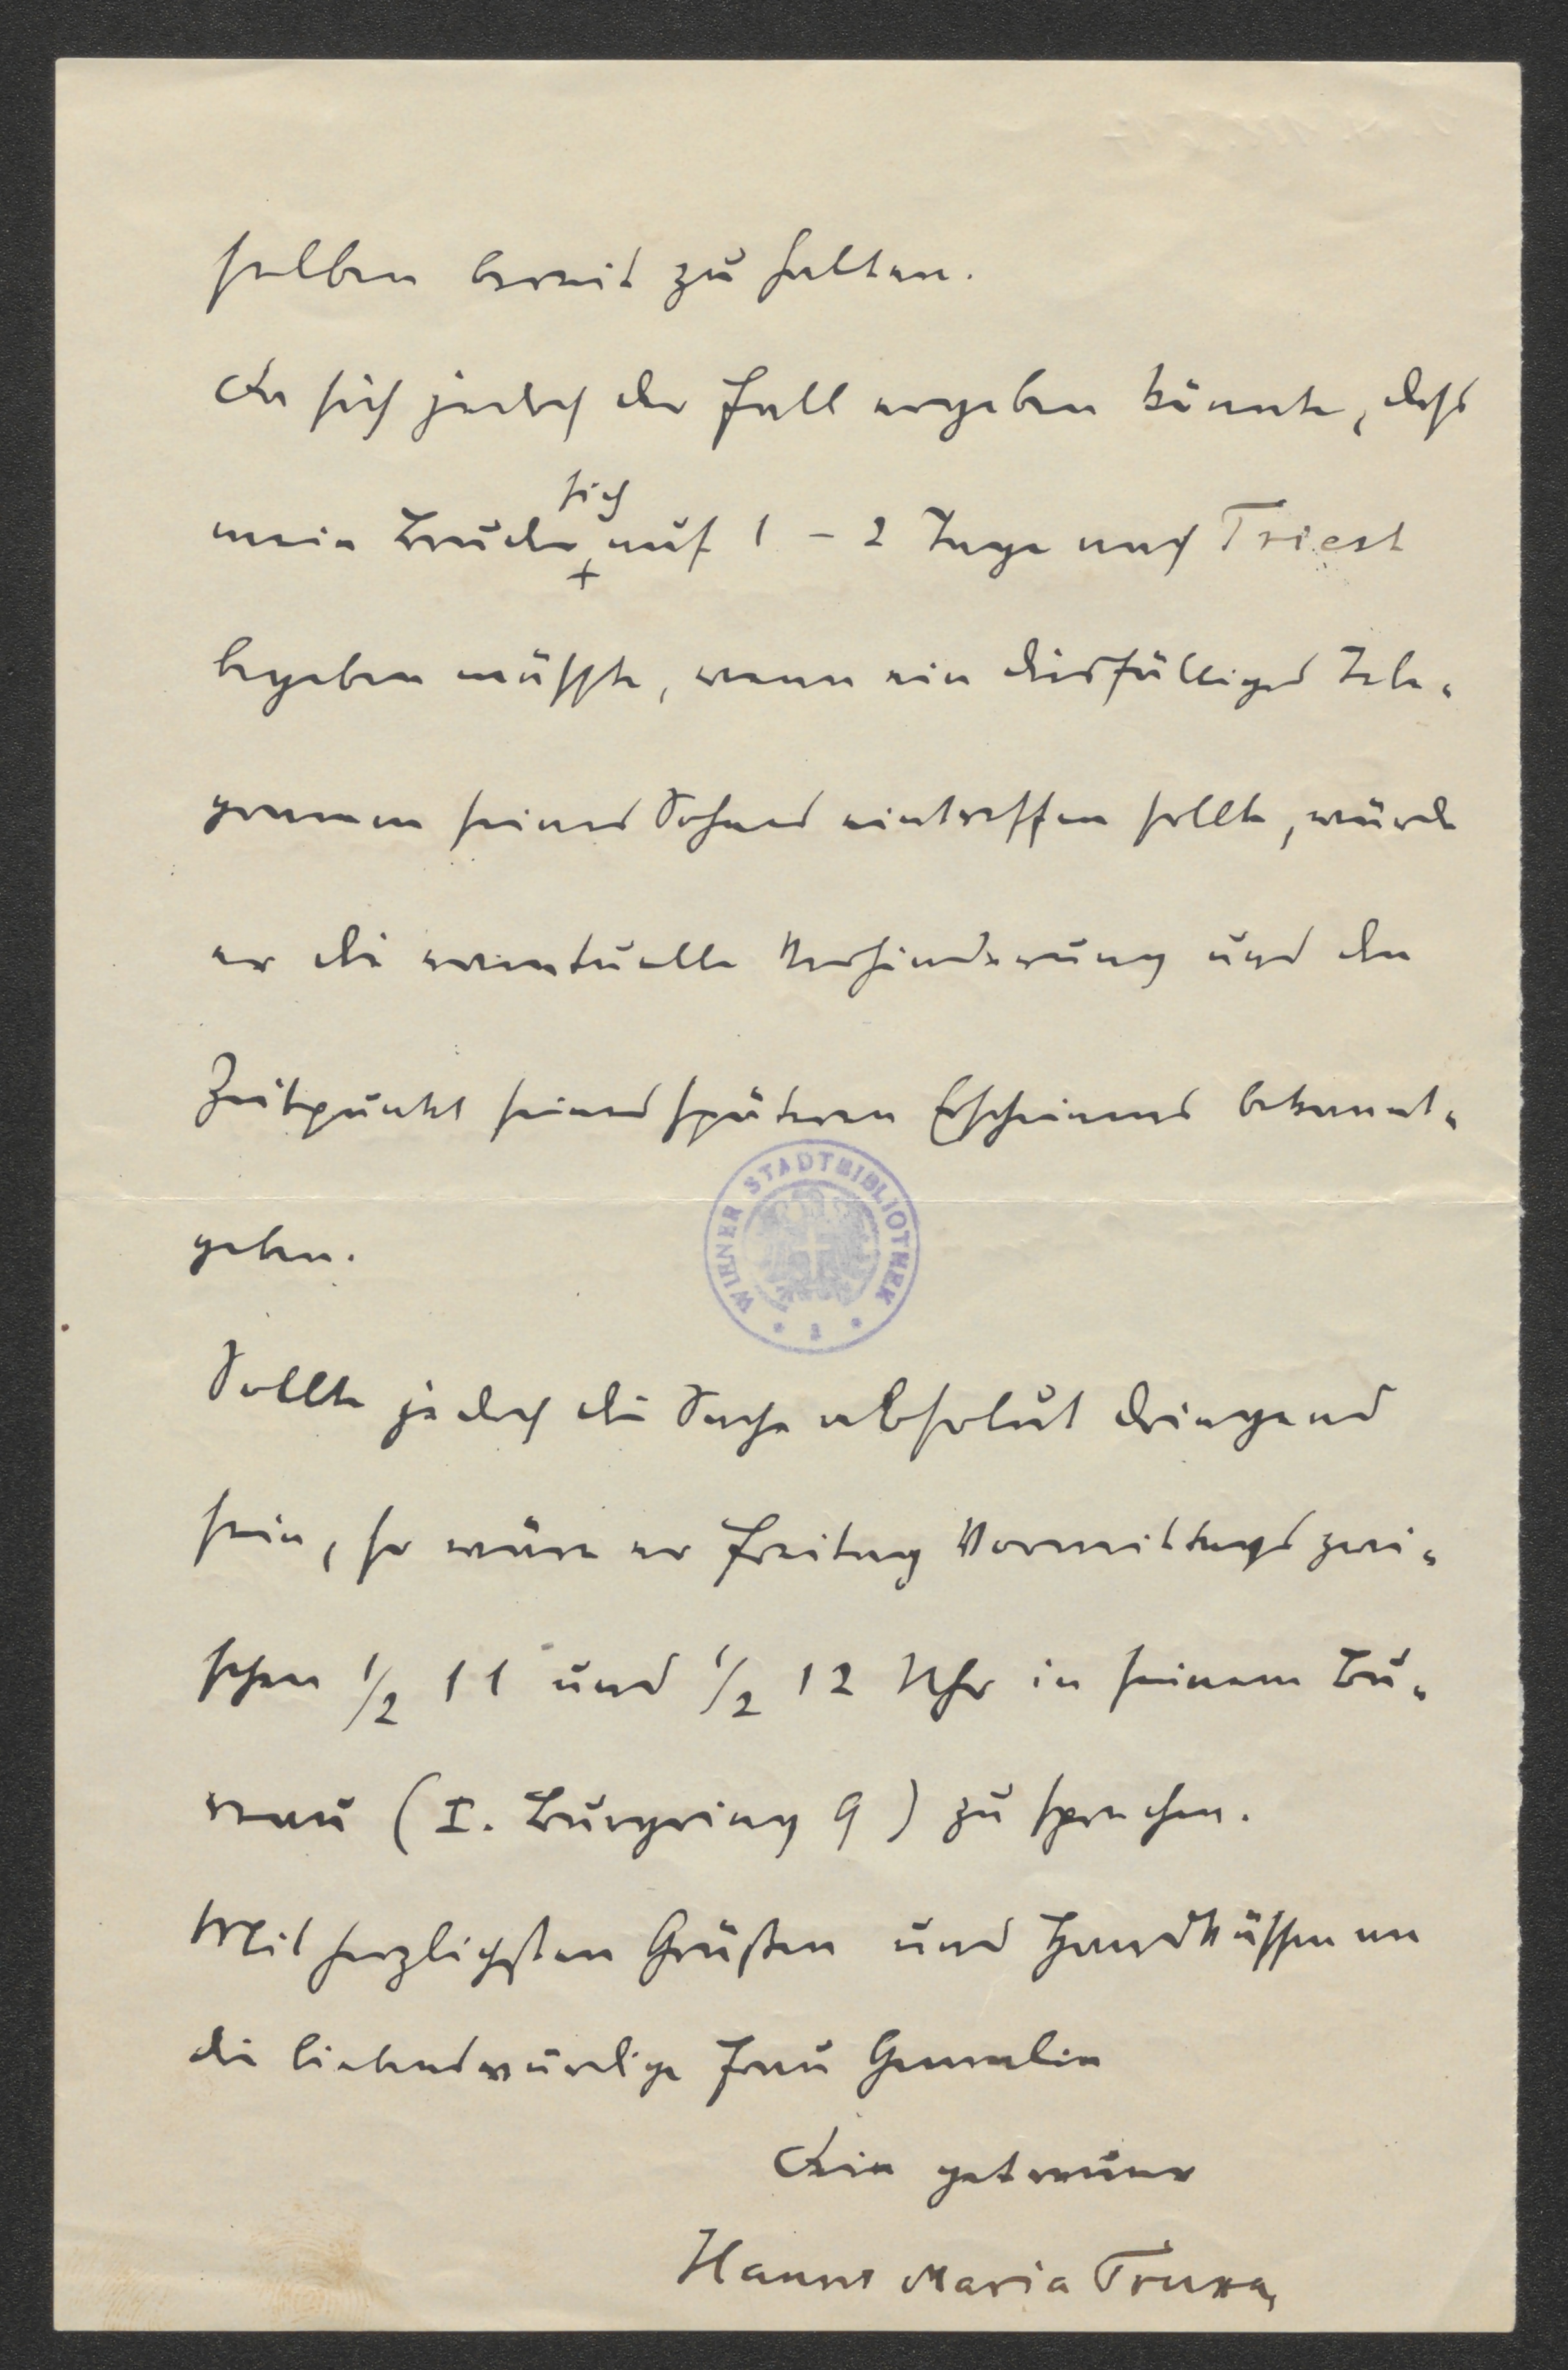 selben bereit zu halten.
Da sich jedoch der Fall ergeben könnte, daß
sich
mein Bruder + auf 1 - 2 Tage nach Triest
begeben müsste, wenn ein diesfälliges Tele-
gramm seines Sohnes eintreffen sollte, würde
er die eventuelle Verhinderung und den
Zeitpunkt seines späteren Erscheinens bekannt-
geben.
WIENER STADTBIBLIOTHEK
Sollte jedoch die Sache absolut dringend
sein, so wäre er Freitag Vormittags zwi-
schen 1/2 11 und 1/2 12 Uhr in seinem Bu-
reau (I. Burgring 9) zu sprechen.
Mit herzlichsten Grüßen und Handküssen an
die liebenswürdige Frau Gemalin
Dein getreuer
Hanns Maria Truxa